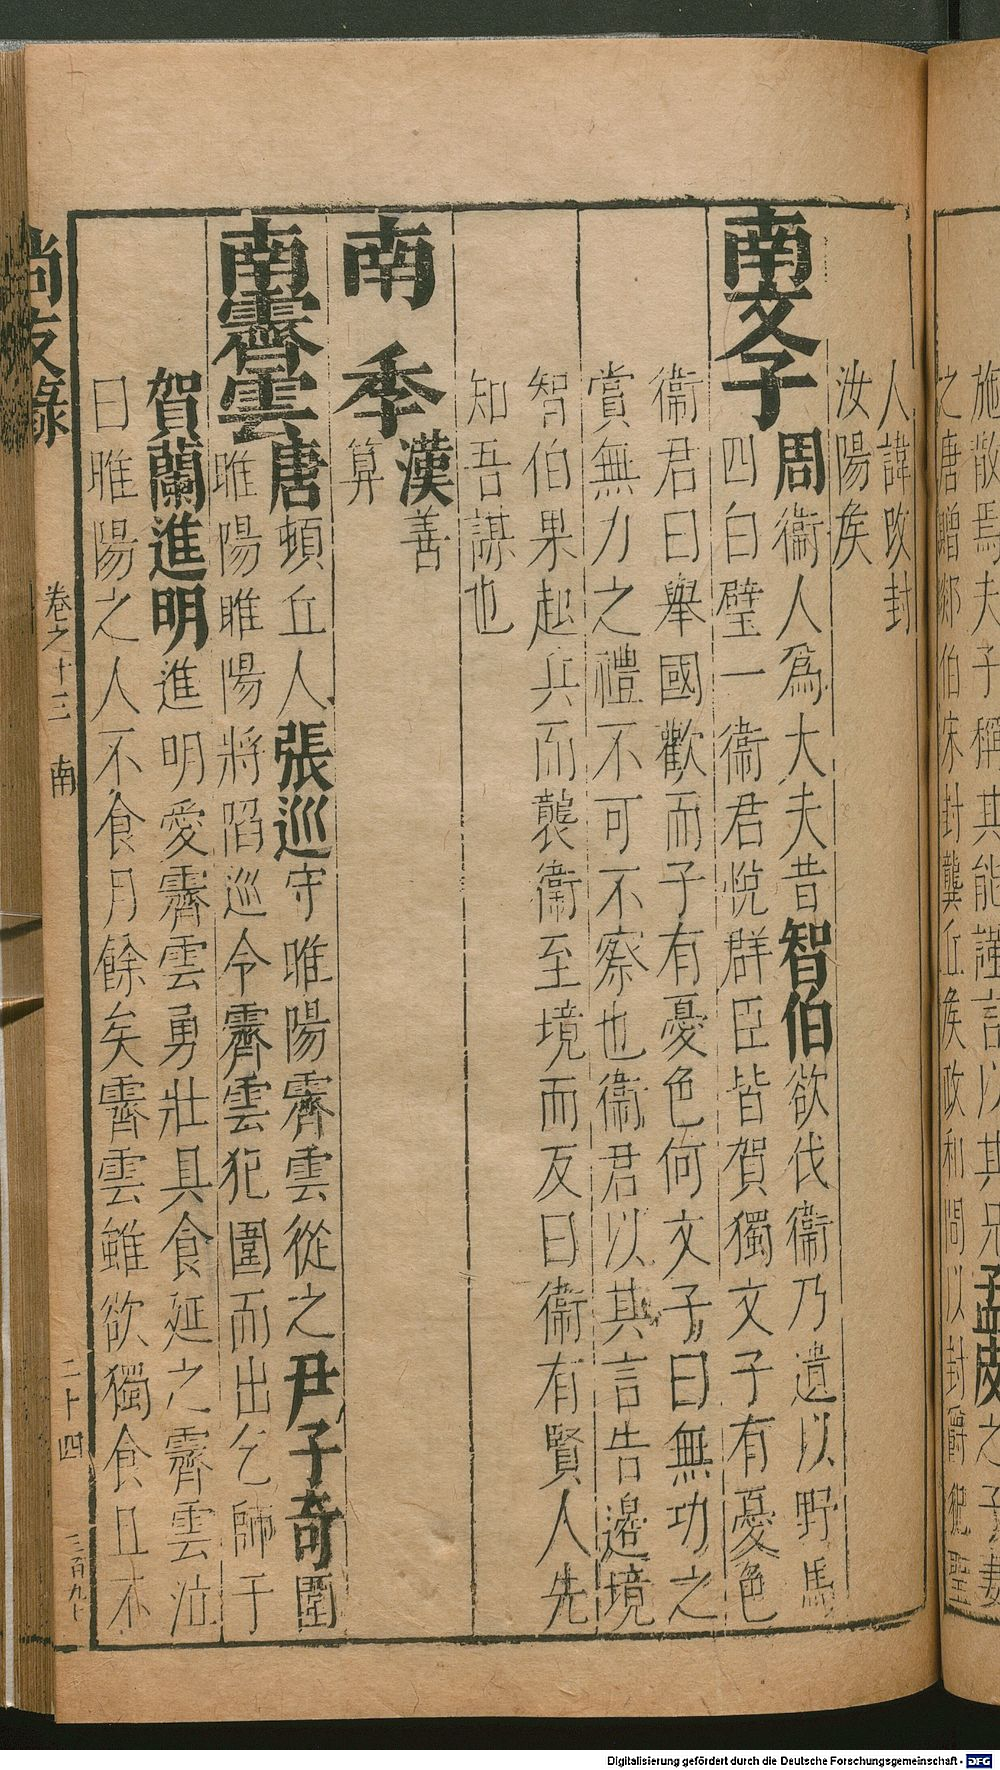 施散焉夫子稱其能謹言以其兄孟皮之子妻
之唐贈郯伯宋封龔丘侯政和間以封爵犯聖
人諱改封
汝陽侯
南文子周衞人爲大夫昔智伯欲伐衞乃遺以野馬
四白璧一衞君悅群臣皆賀獨文子有憂色
衞君曰舉國歡而子有憂色何文子曰無功之
賞無力之禮不可不察也衞君以其言告邊境
智伯果起兵而襲衞至境而反曰衞有賢人先
知吾謀也
南季漢善
算
南霽雲唐頓丘人張巡守睢陽霽雲從之尹子奇圍
睢陽睢陽將陷巡令霽雲犯圍而出乞師于
賀蘭進明進明愛霽雲勇壯具食延之霽雲泣
曰睢陽之人不食月餘矣霽雲雖欲獨食且不
尚友錄 卷之十三 南 二十四 三百九十
Digitalisierung gefördert durch die Deutsche Forschungsgemeinschaft - DFG